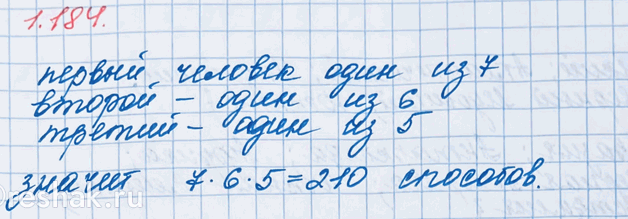 1.184.
первый человек один из 7
второй - один из 6
третий - один из 5
значит 7·6·5=210 способов.
reshak.ru